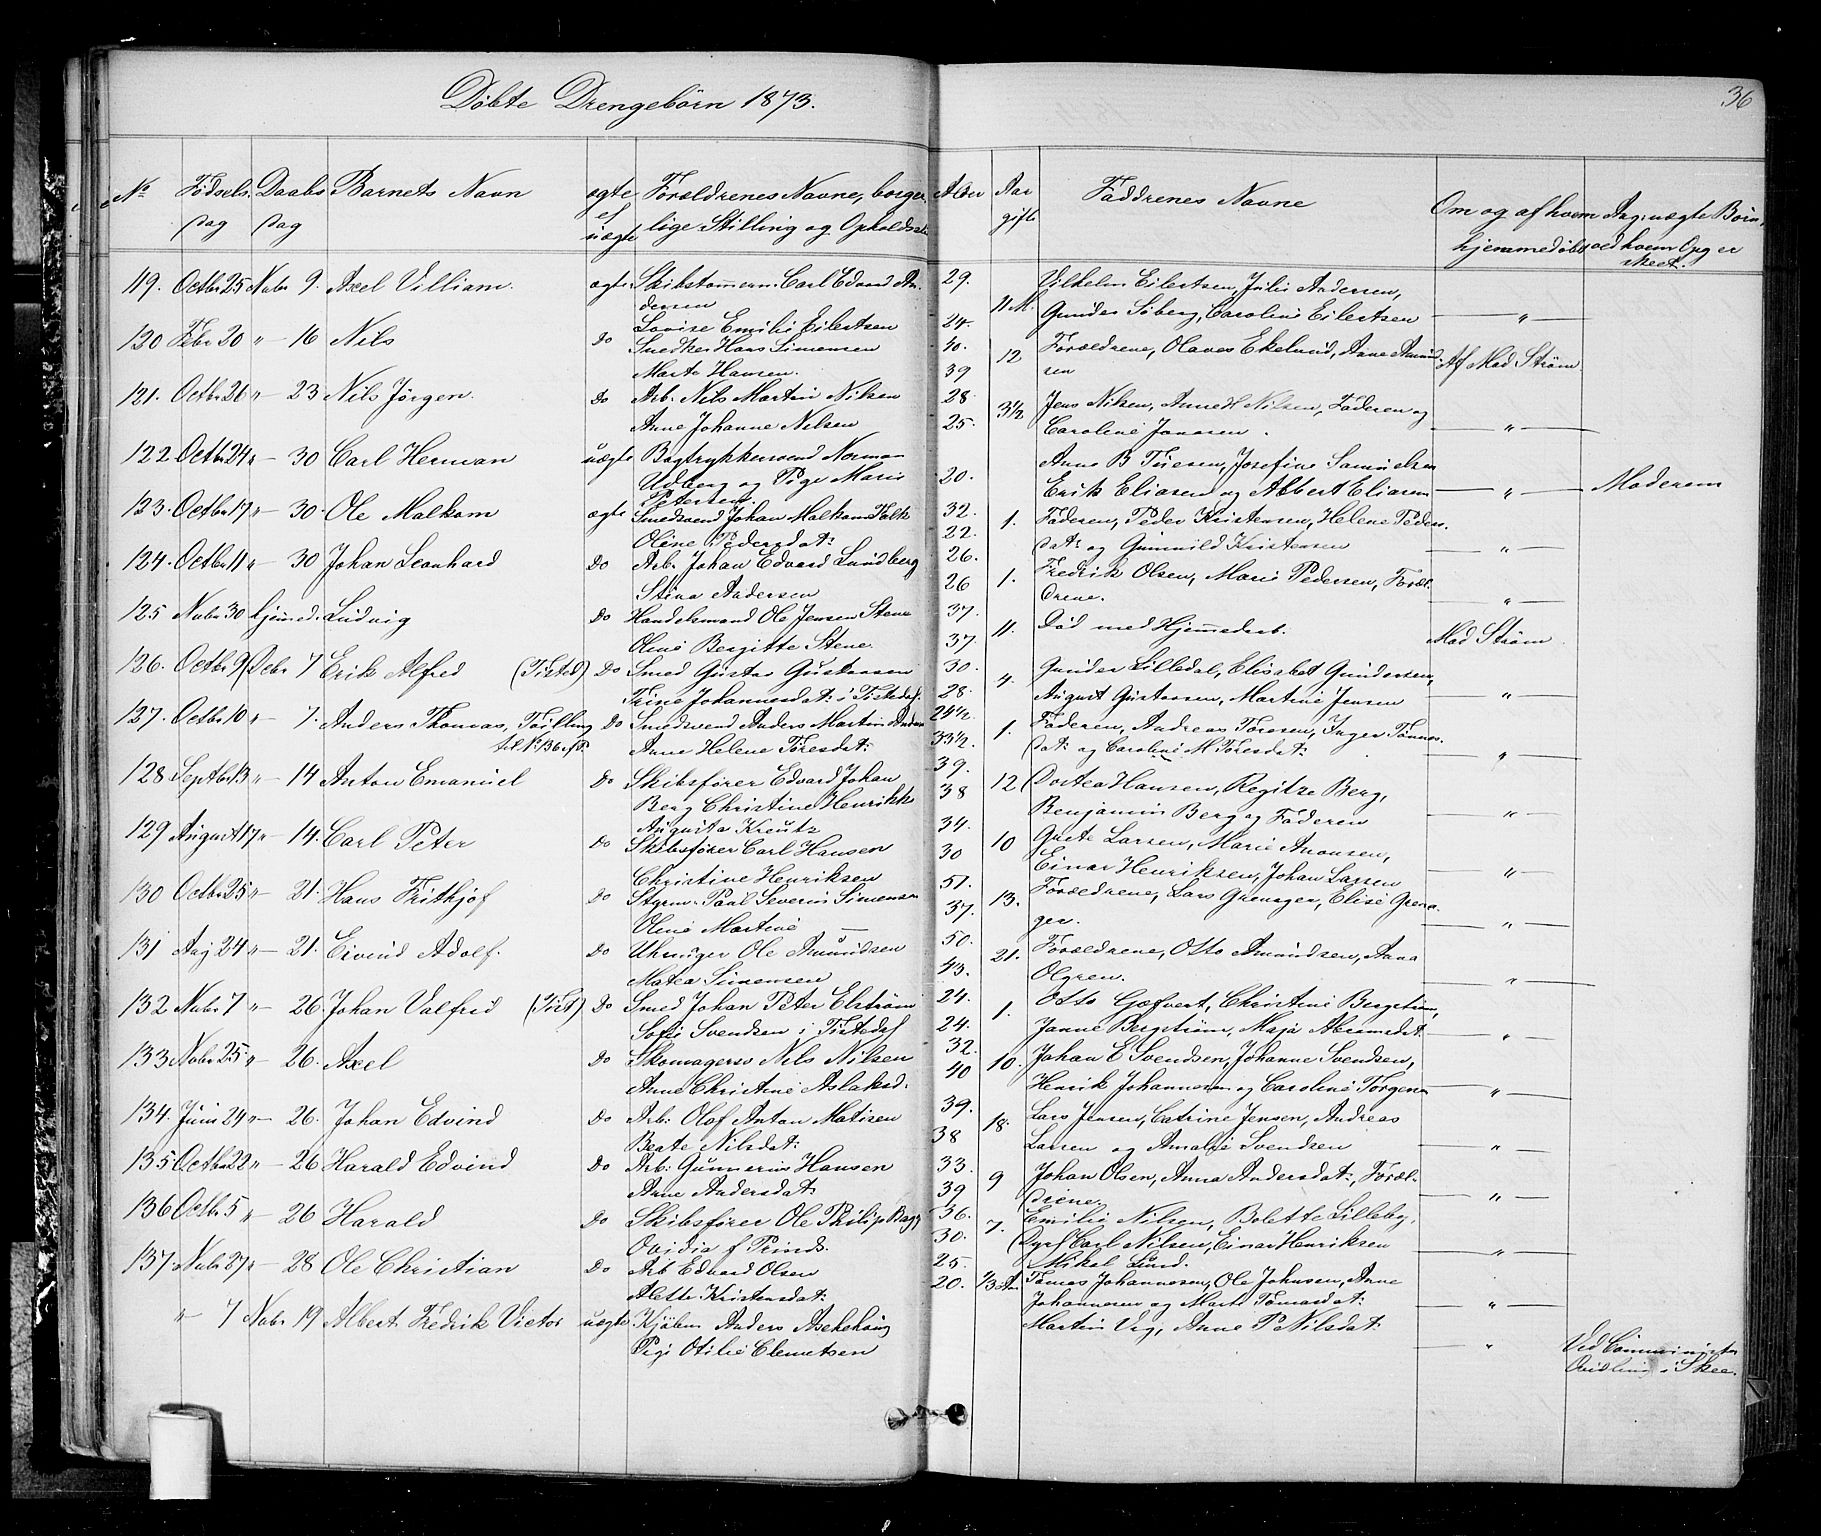 Döbte Drengebörn 1873.
36
No Fødsels Daabs Barnets Navn ægte Forældrenes Navne, borger Alder Aar Faddrenes Navne Om og af hvem Ang: uægte Börn,
dag dag el lige Stilling og Opholdsste gift hjemmedöbt ved hvem Opg er
uægte skeet.
119. Octbr 25 Novbr 9. Axel Villiam. ægte Skibstömerm. Carl Edvard An 29. Vilhelm Eilertsen, Julie Andersen,
dersen 11 M.
Lovise Emilie Eilertsen 24. Gunder Söberg, Caroline Eilertsen — " —
120 Febr 20 " — 16 Nils Do Snedker Hans Simensen 40. 12 Forældrene, Olaves Ekelund, Anne Amund Af Mad Ström
Marte Hansen. 39 sen
121. Octbr 26 " — 23 Nils Jörgen. Do Arb. Nils Martin Nilsen 28 3½ Jens Nilsen, Anne H Nilsen, Faderen og
Anne Johanne Nilsen 25. Caroline Jansen. — " —
122 Octbr 24 " — 30 Carl Herman uægte Bogtrykkersvend Norman Anne B Tuesen, Josefine Samuelsen
Udberg og Pige Marie 20. Erik Eliasen og Albert Eliasen — " — Moderen
Petersen.
123. Octbr 17 " — 30. Ole Malkom ægte Smedsvend Johan Malkom Falk 32. 1. Faderen, Peder Kristensen, Helene Peders
Oline Pedersdat: 22. dat: og Gunnild Kristensen — " —
124. Octbr 11 " — 30 Johan Leonhard Do Arb. Johan Edvard Lundberg 26. 1. Fredrik Olsen, Marie Pedersen, Foræl
Stina Andersen 26 drene. — " —
125 Novbr 30 hjemmed. Ludvig Do Handelsmand Ole Jensen Stene 37. 11. Död med Hjemmedaab. Mad Ström
Oline Bergitte Stene 37.
126. Octbr 9 Debr 7 Erik Alfred (Tisted) Do Smed Gustav Gustavsen 30. 4. Gunder Lilledal, Elisabet Gundersen,
Trine Johannesdat: i Tistedal 28. August Gustavsen, Martine Jensen — " —
127. Octbr 10 " — 7. Anders Thomas, Tvilling Do Smedsvend Anders Martin Anders 24½ 1. Faderen, Andreas Toresen, Inger Tönnes
til No 136 Anne Helene Toresdat: 33½. dat: og Caroline M Toresdat: — " —
128 Septbr 13 " — 14 Anton Emanuel Do Skibsförer Edvard Johan 39. 12 Dortea Hansen, Regitze Berg,
Berg Christine Henrikke 38 Benjamin Berg og Faderen — " —
Augusta Kreutz
129 August 17 " — 14. Carl Peter Do Skibsförer Carl Hansen 34. 10 Grete Larsen, Marie Aronsen,
Christine Henriksen 30 Einar Henriksen, Johan Larsen — " —
130 Octbr 25 " — 21. Hans Frithjof Do Styrm. Paul Severin Simensen 51. 13. Forældrene, Lars Grenager, Elise Grena
Oline Martine — 37. ger. — " —
131 Aug 24 " — 21. Eivind Adolf. Do Uhrmager Ole Amundsen 50. 21. Forældrene, Otto Amundsen, Anna
Matea Simensen 43. Olgren. — " —
132 Novbr 7 " — 26 Johan Valfrid (Tist) Do Smed Johan Peter Elström 24. 1. Otto Gæfvert, Christine Bergström,
Sofie Svendsen i Tistedal 24. Janne Bergström, Maja Abramsdat — " —
133 Novbr 25 " — 26. Axel Do Skomagersv Nils Nilsen 32. 10. Johan E Svendsen, Johanne Svendsen,
Anne Christine Aslaksd. 40 Henrik Johannesen og Caroline Torgersen — " —
134. Juni 24 " — 26. Johan Edvind Do Arb: Olaf Anton Matisen 39. 18. Lars Jensen, Catrine Jensen, Andreas
Beate Nilsdat: 38 Larsen og Amalie Svendsen — " —
135 Octbr 22 " — 26 Harald Edvind Do Arb: Gunnerius Hansen 33. 9 Johan Olsen, Anna Andersdat:, Foræl-
Anne Andersdat 39 drene. — " —
136 Octbr 5 " — 26 Harald Do Skibsförer Ole Philip Bagg 36. 7. Emilie Nilsen, Bolette Lilleby,
Ovidia f Prinds. 30. Dyrl Carl Nilsen, Einar Henriksen — " —
Mikal Lund.
137. Novbr 27 " — 28 Ole Christian Do Arb Edvard Olsen 25. 1/3 Aar Tomas Johannesen, Ole Johnsen, Anne
Alette Kristensdat: 20. Johannesen og Marte Tomasdat: — " —
" — 7 Novbr 19 Albert Fredrik Victor uægte Kjöbm Anders Askehaug Martin Vig, Anne P Nilsdat:
Pige Otilie Clemetsen — " — Ved Comminister
i Skee.